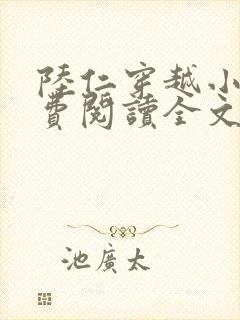 陸仁穿越小
費閱讀全文
池廣太